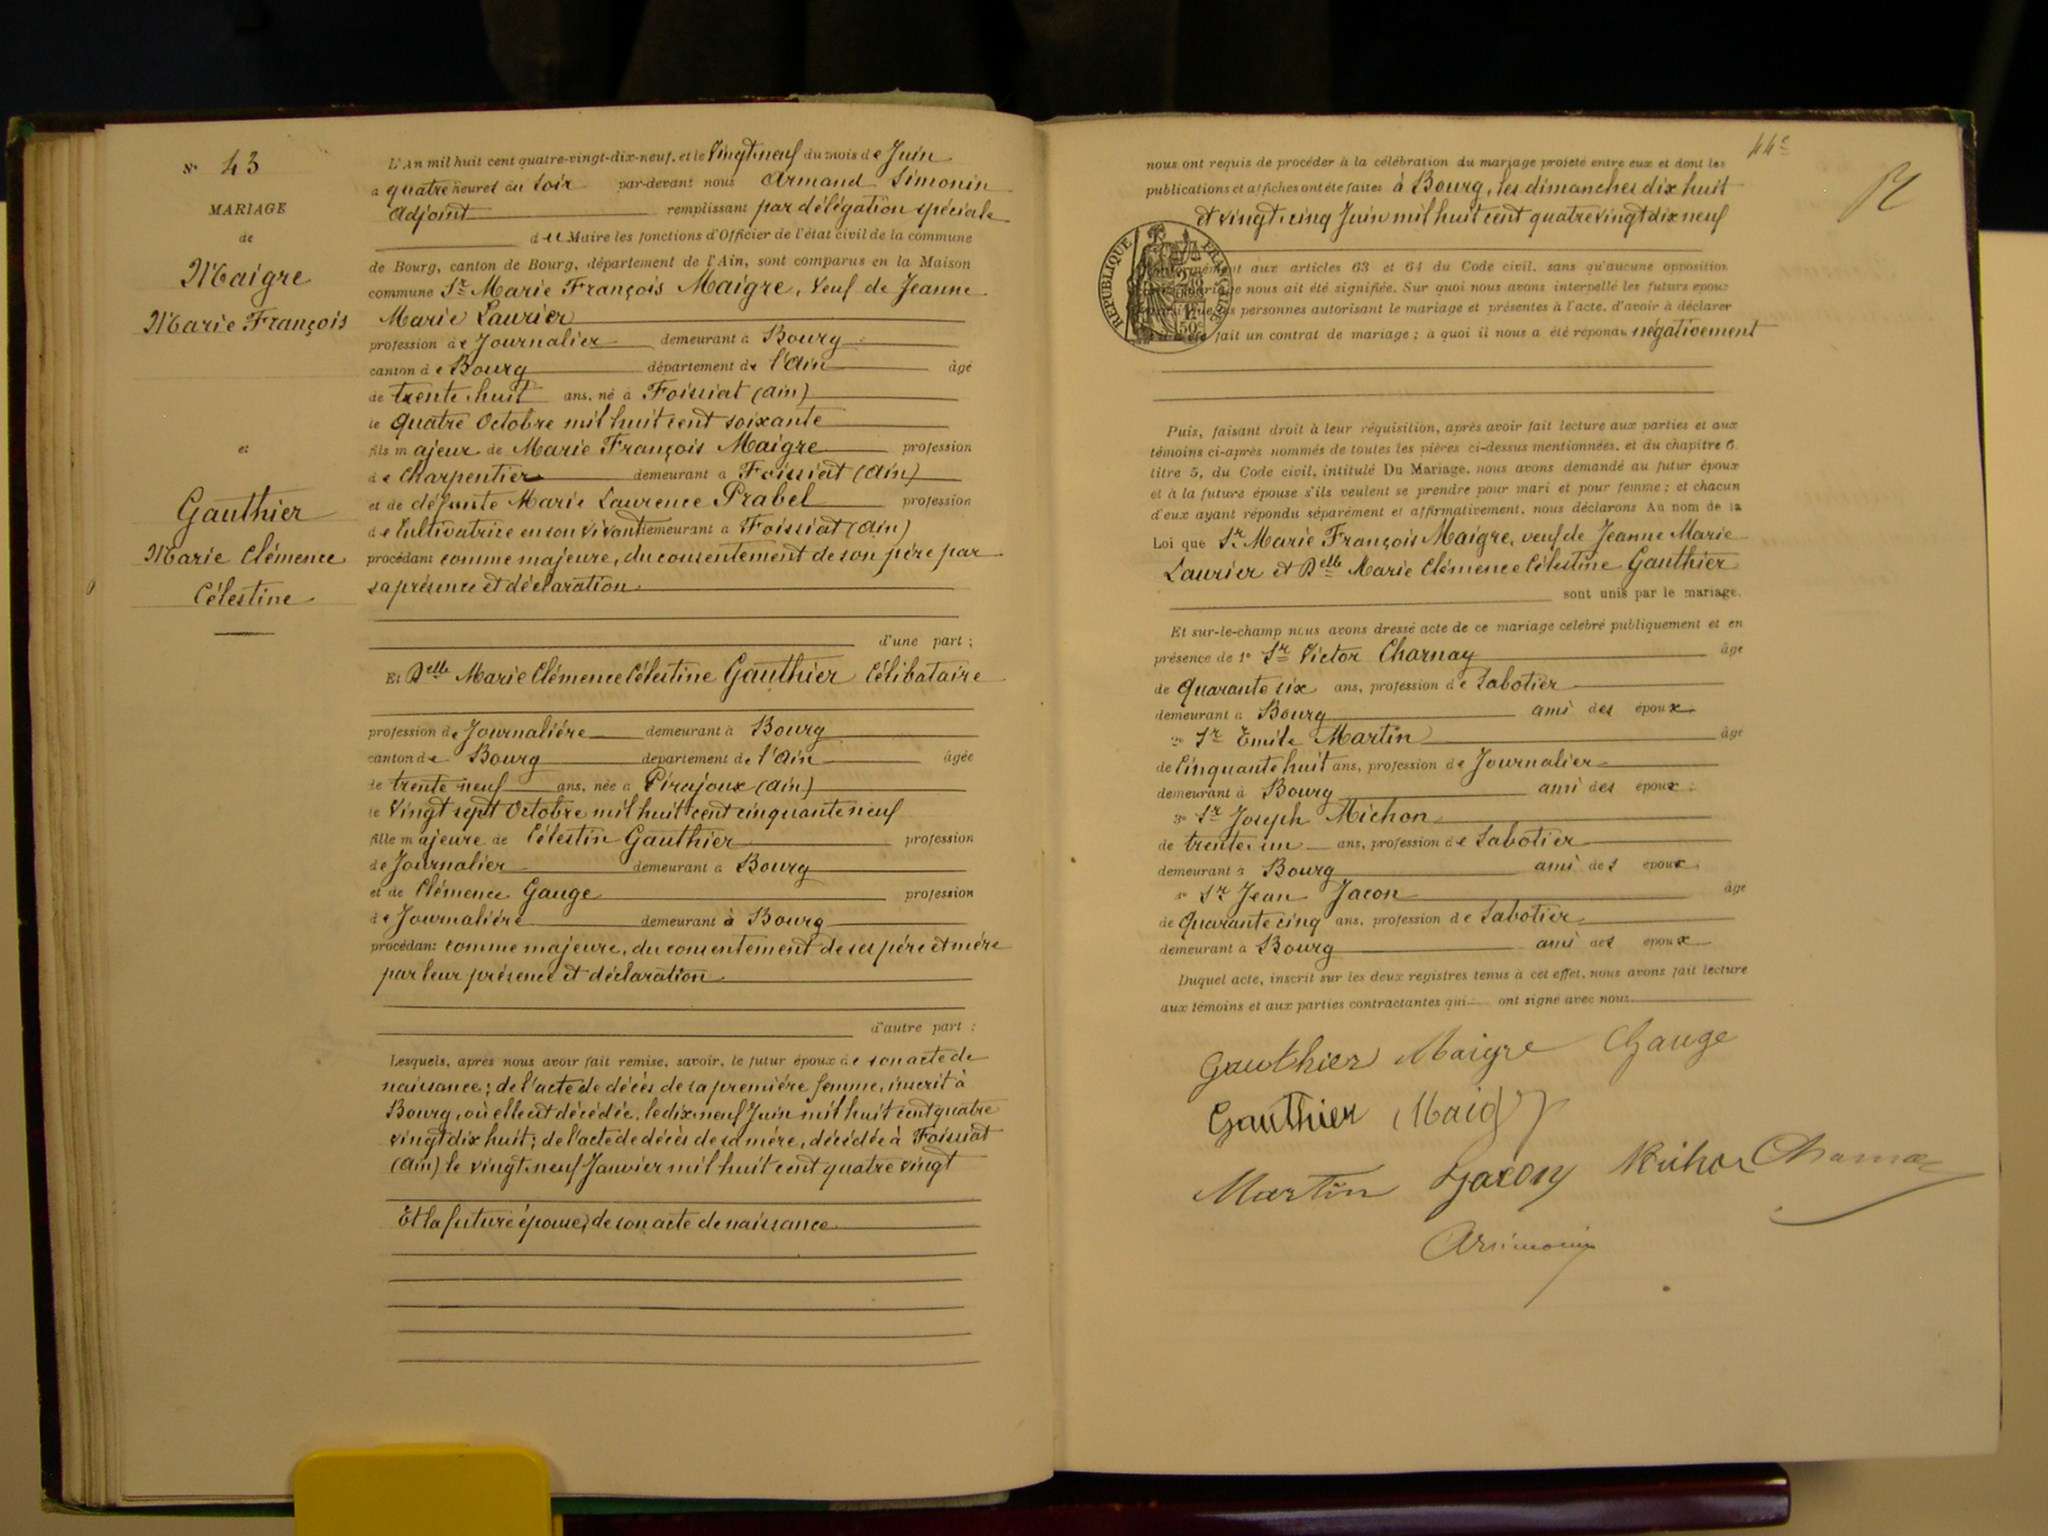 N° 43
MARIAGE
de
Maigre
Marie François
et
Gauthier
Marie Clémence
Célestine
L'An mil huit cent quatre-vingt-dix-neuf, et le Vingt neuf du mois de Juin
a quatre heures du soir par-devant nous Armand Simonin
Adjoint remplissant par délégation spéciale
du Maire les fonctions d'Officier de l'état civil de la commune
de Bourg, canton de Bourg, département de l'Ain, sont comparus en la Maison
commune Sr Marie François Maigre, Veuf de Jeanne
Marie Laurier
profession de Journalier demeurant à Bourg
canton de Bourg département de l'Ain âgé
de trente huit ans, né à Foissiat (Ain)
le quatre Octobre mil huit cent soixante
fils majeur de Marie François Maigre profession
de Charpentier demeurant a Foissiat (Ain)
et de défunte Marie Laurence Prabel profession
de Cultivatrice en son vivant demeurant a Foissiat (Ain)
procédant comme majeure, du consentement de son père par
sa présence et déclaration
d'une part ;
Et Delle Marie Clémence Célestine Gauthier Célibataire
profession de Journalière demeurant à Bourg
canton de Bourg département de l'Ain âgée
de trente neuf ans, née a Pirajoux (Ain)
le Vingt sept Octobre mil huit cent cinquante neuf
fille majeure de Célestin Gauthier profession
de Journalier demeurant a Bourg
et de Clémence Gauge profession
de Journalière demeurant à Bourg
procédant comme majeure, du consentement de ses père et mère
par leur présence et déclaration
d'autre part :
Lesquels, après nous avoir fait remise, savoir, le futur époux de son acte de
naissance ; de l'acte de décès de sa première femme, inscrit à
Bourg, où elle est décédée, le dix neuf Juin mil huit cent quatre
vingt dix huit ; de l'acte de décès de sa mère, décédée à Foissiat
(Ain) le vingt neuf Janvier mil huit cent quatre vingt
Et la future épouse, de son acte de naissance
44e
nous ont requis de procéder à la célébration du mariage projeté entre eux et dont les
publications et affiches ont été faites à Bourg, les dimanches dix huit
et vingt cinq Juin mil huit cent quatre vingt dix neuf
REPUBLIQUE FRANÇAISE
aux articles 63 et 64 du Code civil, sans qu'aucune opposition
nous ait été signifiée. Sur quoi nous avons interpellé les futurs époux
personnes autorisant le mariage et présentes à l'acte, d'avoir à déclarer
fait un contrat de mariage ; à quoi il nous a été répondu négativement
Puis, faisant droit à leur réquisition, après avoir fait lecture aux parties et aux
témoins ci-après nommés de toutes les pièces ci-dessus mentionnées, et du chapitre 6,
titre 5, du Code civil, intitulé Du Mariage, nous avons demandé au futur époux
et à la future épouse s'ils veulent se prendre pour mari et pour femme ; et chacun
d'eux ayant répondu séparément et affirmativement, nous déclarons Au nom de la
Loi que Sr Marie François Maigre, veuf de Jeanne Marie
Laurier et Delle Marie Clémence Célestine Gauthier
sont unis par le mariage.
Et sur-le-champ nous avons dressé acte de ce mariage célébré publiquement et en
présence de 1° Sr Victor Charnay âgé
de Quarante six ans, profession de Sabotier
demeurant a Bourg ami des époux
2° Sr Emile Martin âgé
de Cinquante huit ans, profession de Journalier
demeurant à Bourg ami des époux ;
3° Sr Joseph Michon
de trente un ans, profession de Sabotier
demeurant à Bourg ami des époux
4° Sr Jean Jacon âgé
de Quarante cinq ans, profession de Sabotier
demeurant a Bourg ami des époux
Duquel acte, inscrit sur les deux registres tenus à cet effet, nous avons fait lecture
aux témoins et aux parties contractantes qui ont signé avec nous
Gauthier Maigre Gauge
Gauthier
Martin Jacon